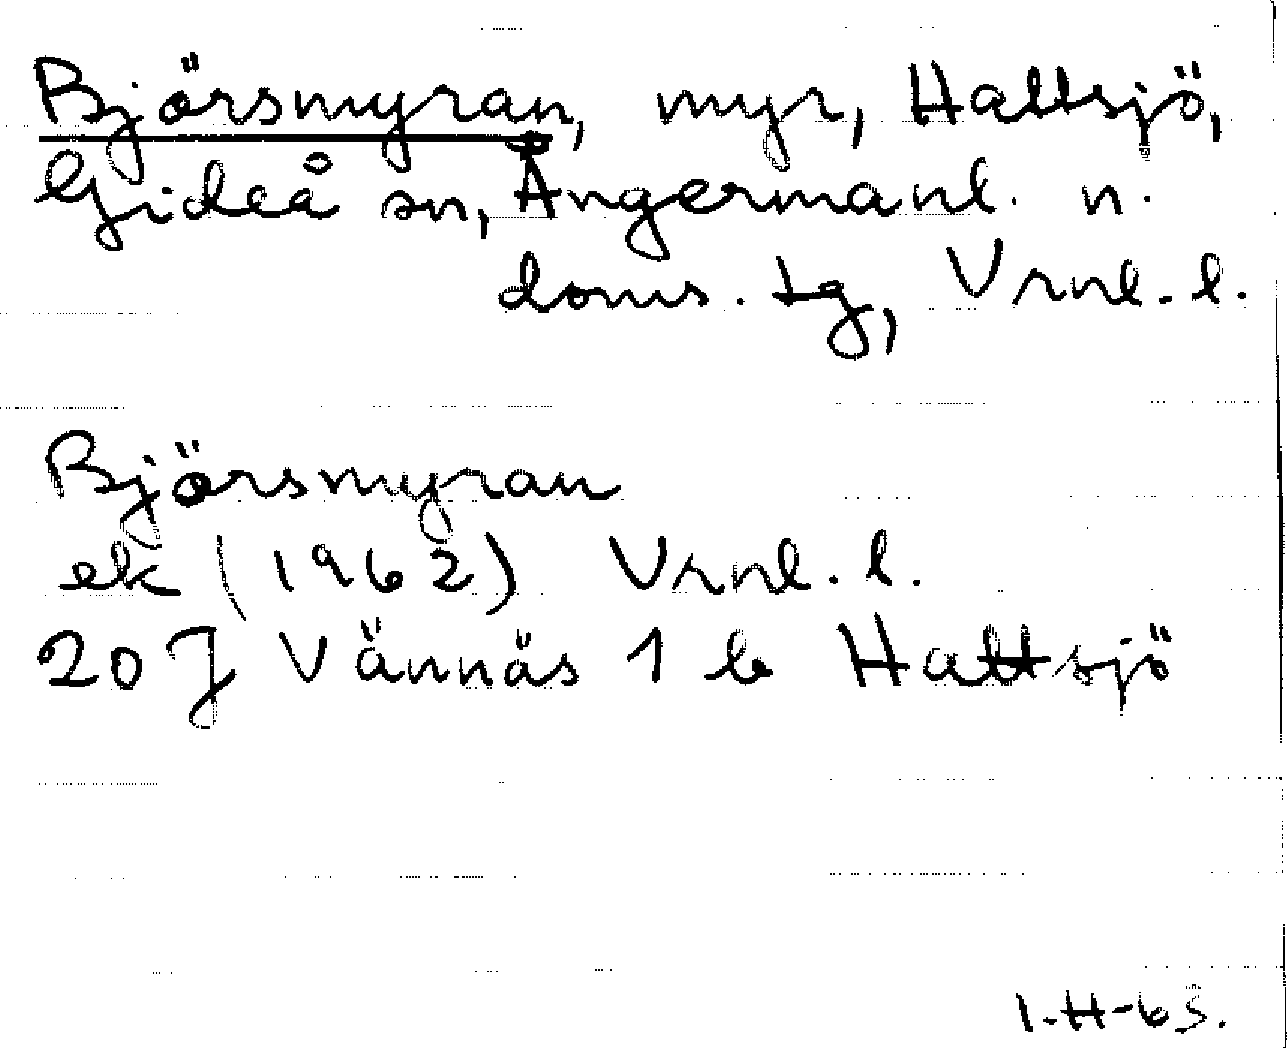 Björsmyran, myr, Hattsjö,
Gideå sn, Ångermanl. n.
doms. tg, Vrnl. l.
Björsmyran
ek (1962) Vrnl. l.
20 J Vännäs 1 b Hattsjö
I.H-63.